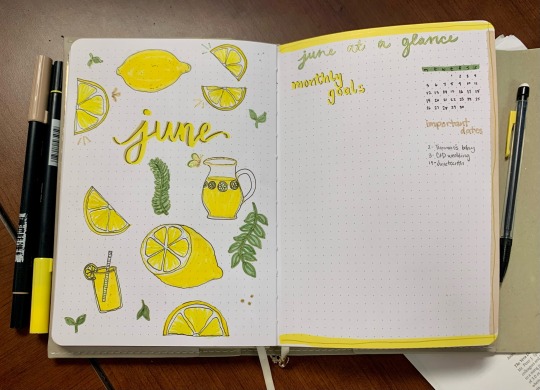 june
june at a glance
monthly
goals
1 2 3 4
5 6 7 8 9 10 11
12 13 14 15 16 17 18
19 20 21 22 23 24 25
26 27 28 29 30
important
dates
2- baby
3- wedding
19- Juneteenth